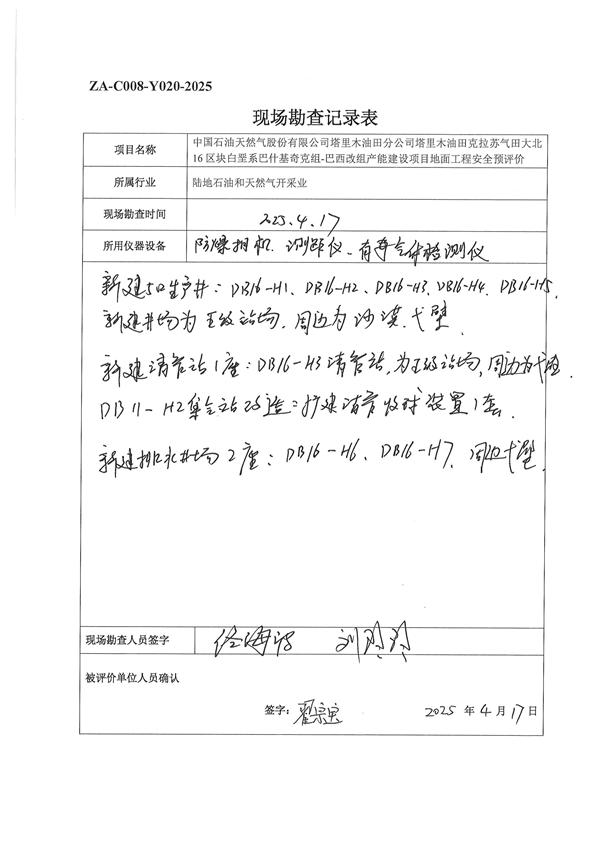 ZA-C008-Y020-2025
现场勘查记录表
项目名称
中国石油天然气股份有限公司塔里木油田分公司塔里木油田克拉苏气田大北
16区块白垩系巴什基奇克组-巴西改组产能建设项目地面工程安全预评价
所属行业
陆地石油和天然气开采业
现场勘查时间
2025.4.17
所用仪器设备
防爆相机、测距仪、有毒气体检测仪
新建5口生产井：DB16-H1、DB16-H2、DB16-H3、DB16-H4、DB16-H5，
新建井场为五级站场，周边为沙漠、戈壁
新建清管站1座：DB16-H3清管站，为五级站场，周边为戈壁．
DB11-H2集气站改造：扩建清管收球装置1套．
新建排水井场2座：DB16-H6、DB16-H7，周边戈壁．
现场勘查人员签字
被评价单位人员确认
签字：
2025 年 4 月 17 日